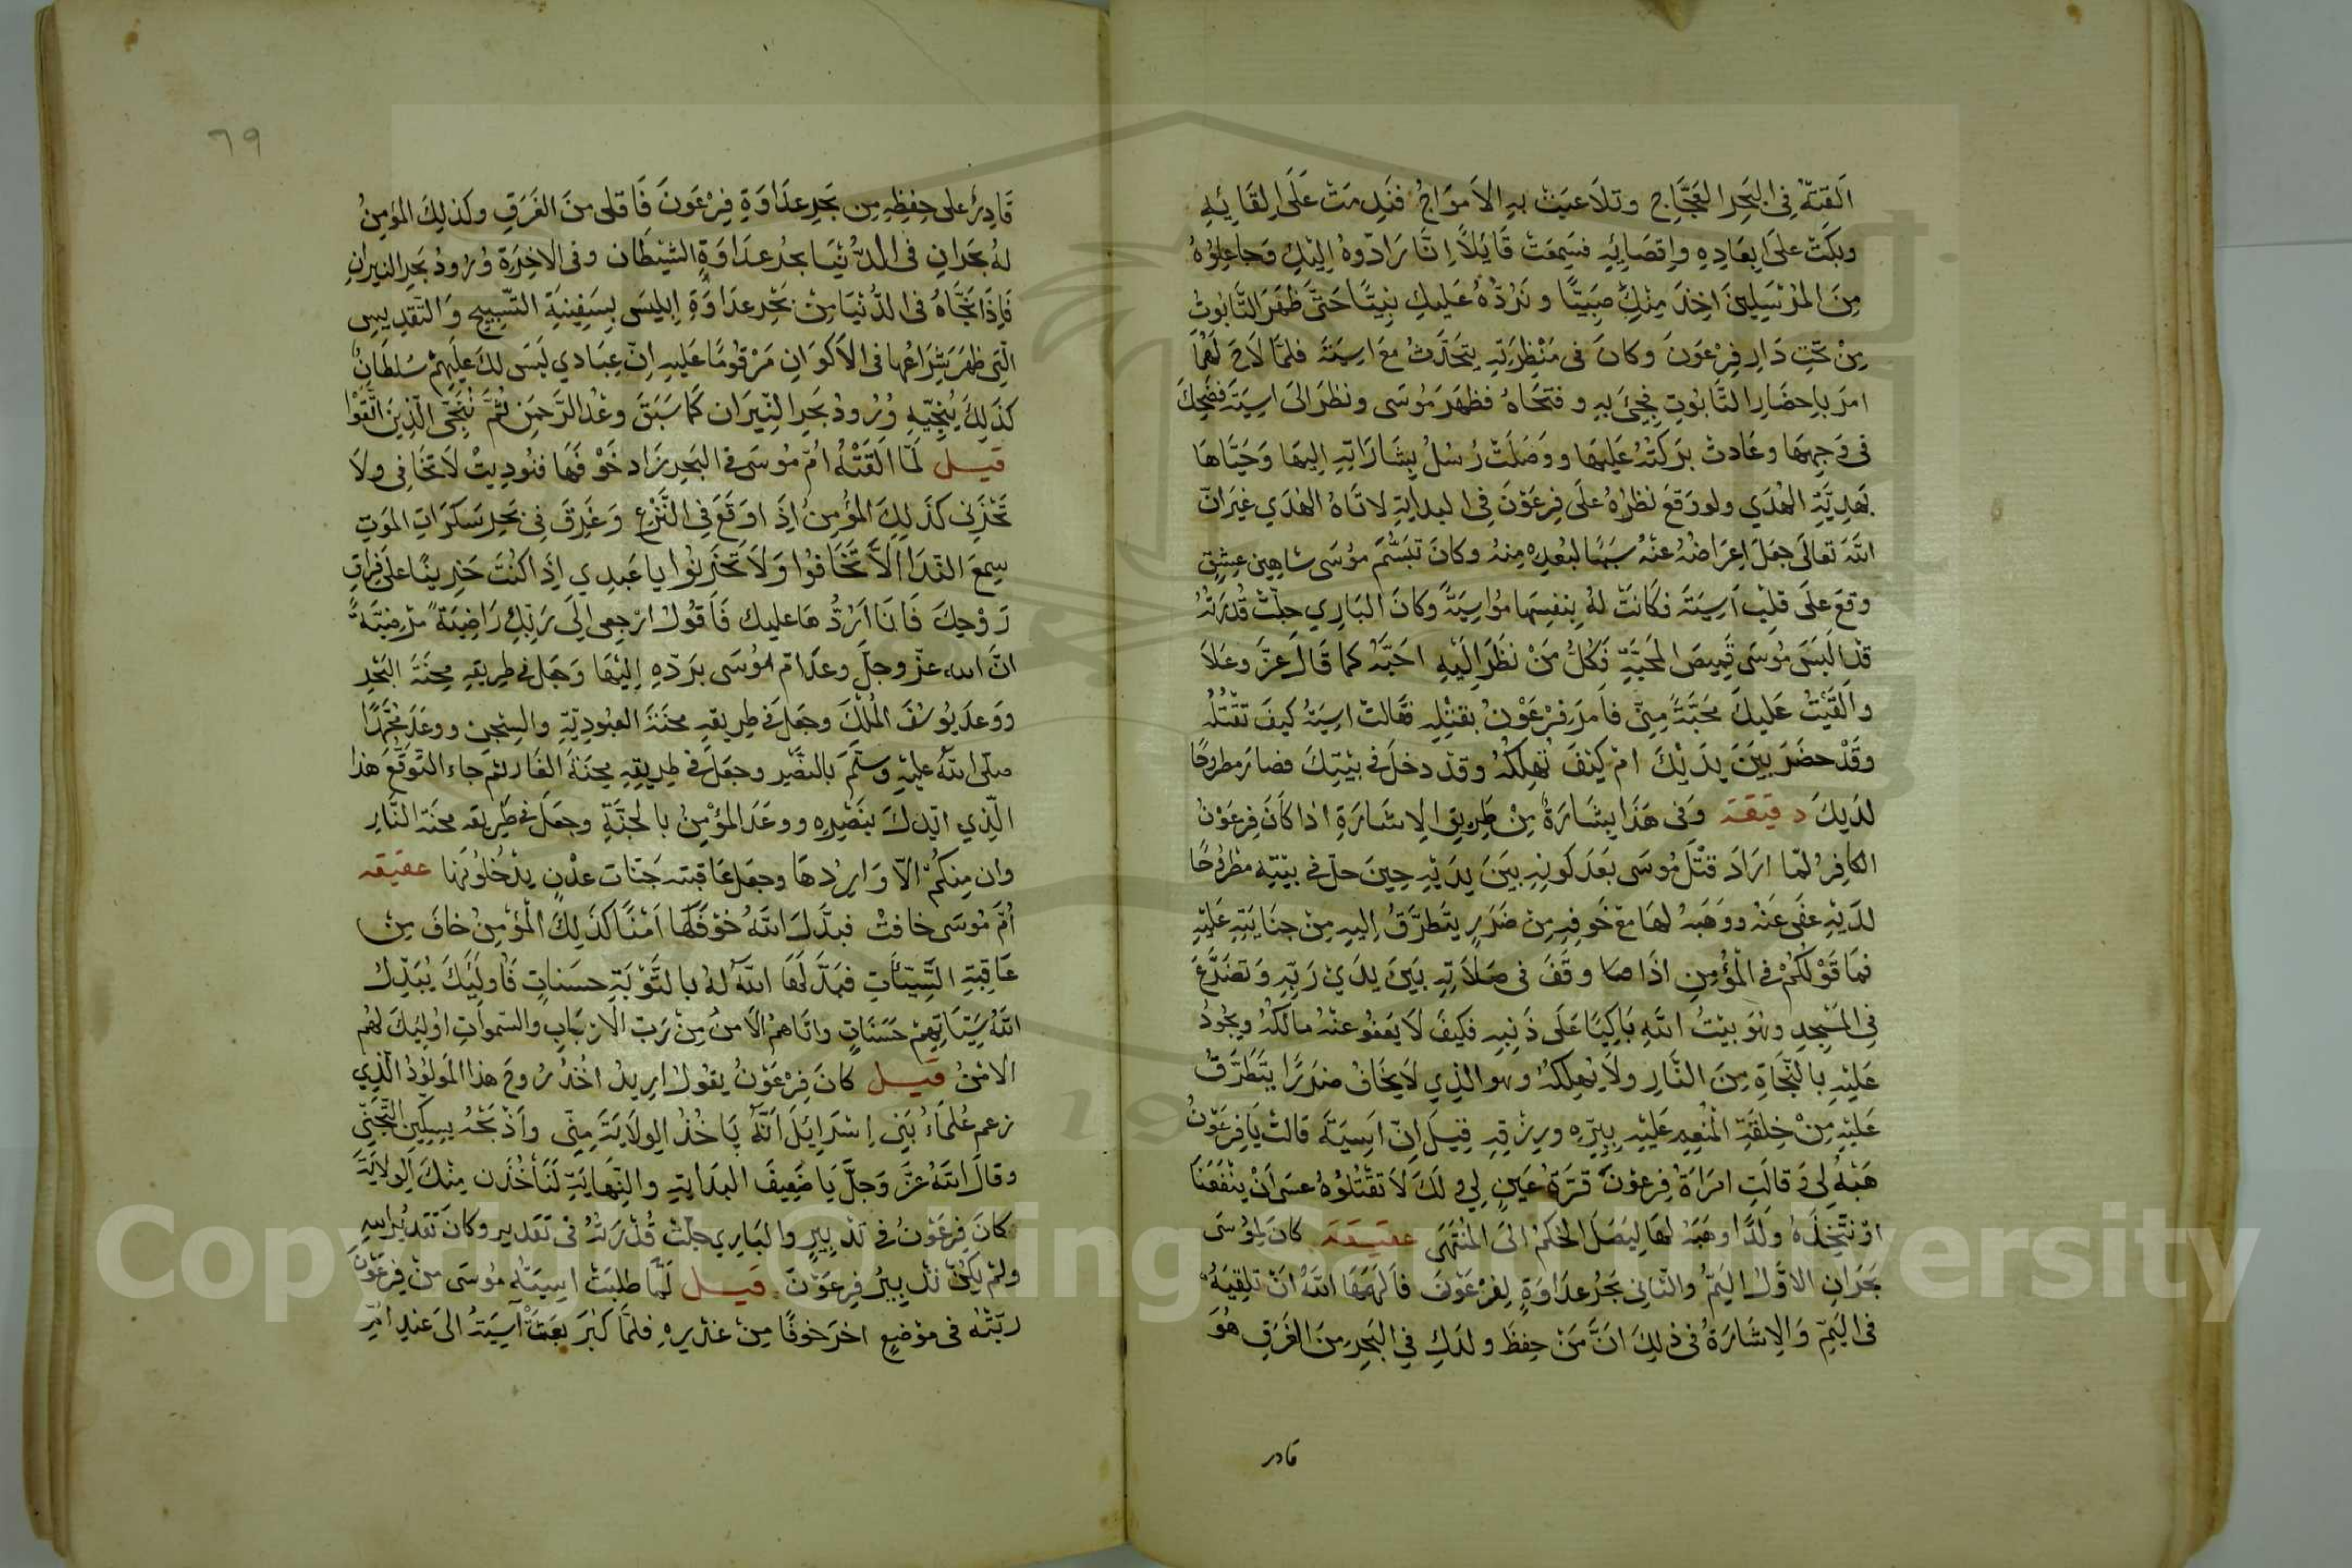 اَلقتهُ فِي البَحِر العَجَّاجِ وتلَاعبَتْ بهِ الاَموَاجُ فنَدِمَتْ عَلَى اِلقَائِهِ
وبكَتْ علَى اِبعَادِهِ واِقصَائِهِ فسَمِعَتْ قَائِلاً اِنَّا رَادّوهُ اِليْكِ وَجَاعِلوُهُ
مِنَ المُرْسَلِينَ اخِذَ مِنْكِ صَبِيًّا ونَرُدُّهُ عَليكِ نبِيًّا حَتَّى ظهَرَ التَّابُوتُ
مِنْ تحَّتِ دَارِ فِرْعَونَ وكانَ فى مَنْظرَتِهِ يتحَدّثُ معَ اسِيَةَ فلمَّا لَاحَ لهُمَا
امرَ باِحضَارِ التَّابُوتِ فجِئَ بهِ وفتحَاهُ فظهَرَ مُوسَى ونظرَ الىَ اسِيَة فضَحِكَ
فى وَجههَا وعَادتْ برَكتهُ عَليهَا ووَصَلَتْ رُسُلُ بِشَارَاتِهِ اليهَا وَحَيَّاهَا
بهَدِيَّةِ الهُدَي ولو وَقعَ نظرُهُ علَى فِرعَوْنَ فِى البدايَةِ لاتَاهُ الهُدَي غيرَ انّ
اللَّهَ تعَالَى جعَلَ اِعرَاضُهُ عنْهُ سَببًا لبُعدِهِ مِنهُ وكانَ تبَسُّمُ موُسَى شاهِين عِشقٍ
وقعَ علَى قلِبْ اَسِيَةَ فكَانَتْ لهُ بِنفسِهَا مُواسِيَةً وكانَ البَارِي جلّتْ قُدرَتهُ
قدْ الَبسَ مُوسَى قَمِيصَ المحَبّةِ فكُلُّ مَنْ نظَرَ اِليْهِ احَبَّهُ كما قَالَ عزَّ وعَلاَ
واَلقَيْتُ عَليكَ محَبَّةً مِنّى فاَمرَ فِرْعَوْنُ بقتْلِهِ فقَالتْ اسِيَةُ كيفَ تقْتُلُهُ
وقَدْ حضَرَ بيَنَ يدَيْكَ امْ كيْفَ تُهلِكهُ وقدْ دخلَ فى بيْتِكَ فصارَ مطروحًا
لدَيكَ دقيقَة وَفى هَذا بِشَارَةٌ مِنْ طَرِيقِ الاِشَارَةِ اذا كَانَ فِرعَوْنُ
الكافِرُ لمّا ارَادَ قتْلَ مُوسَى بَعدَ كونِهِ بيَنَ يدَيْهِ حِينَ حلّ فى بيْتِهِ مطرُوحًا
لدَيْهِ عفَى عَنْهُ ووَهَبهُ لهَا معَ خَوفِهِ مِنْ ضَررٍ يتَطرَّقُ اِليهِ مِنْ جِنَايَتِهِ عَليْهِ
فمَا قوْلكُمْ فى المُؤمِنِ اذَا صا وقَفَ فى صَلَاتِهِ بَينَ يدَيْ رَبِّهِ وَتضَرَّعَ
فِى المَسْجِدِ وهُوَ بيْتُ اللَّهِ بَاكِيًا عَلَى ذَنبِهِ فكيفَ لَا يَعفُو عنْهُ مالكُهُ ويجُودُ
عَليْهِ بالنّجَاةِ مِنَ النَّارِ ولَا يُهلِكهُ وهو الذِي لَا يخَافُ ضرَرًا يتَطرَّقُ
عَليْهِ مِنْ خِلقَةِ المُنْعِمِ عَليْهِ بِبِرِّهِ ورِزْقِهِ قِيلَ اِنّ اَسِيَةَ قالتْ يَا فِرعَوْنُ
هَبْهُ لِى وَقالَتِ امرَاةُ فِرعوْنَ قرَّةُ عَينٍ لِي ولَكَ لَا تقْتُلوُهُ عسَى اَنْ ينْفعَنَا
اوْ نتَّخِذَهُ ولَدًا وهَبهُ لهَا ليَصَلَ الحُكمُ الىَ المُنْتهَى عقيقة كانَ لِمُوسَى
بحَرَانِ الاوَّلُ اليَمُّ والثّانِى بحَرُ عدَاوَةٍ لِفرْعَوْنَ فاَلهَمَهَا اللَّهُ اَنْ تلقِيَهُ
فى اليَمِّ وَالاِشَارَةُ فى ذلِكَ انَّ مَنْ حِفظَ ولدَكِ فِي البَحِرِ مِنَ الغَرَقِ هُوَ
قادر
٦٩
قَادِرٌ على حِفظِهِ مِن بَحِرِ عدَاوَةِ فِرْعَونَ فَاقلى منَ الغَرَقِ وكَذلِكَ المؤمِنُ
لهُ بحَرانِ فى الدُّنْيَا بحُر عدَاوَةِ الشّيْطَان وفى الاخِرَةِ وُرُودُ بحَرِ النيرانِ
فَاِذَا نجّاهُ فى الدُّنيَا مِنْ بحَرِ عدَاوَةِ اِبليسَ بِسَفِينَةِ التّسْبِيحِ وَالتّقدِيسِ
الّتِى ظهَرَ شِرَاعُهَا فى الاَكوَانِ مَرْقومًا عَليهِ اِنّ عِبَادي لَيسَ لكَ عَليهِمْ سُلطَانٌ
كذَلكَ يُنجِّيهِ وُرُودُ بحَرِ النِّيرَانِ كَما سَبَقَ وعْدُ الرَّحمَنِ ثُمَّ نُنَجّى الّذِينَ اتَّقَوْا
قيل لمَّا اَلقَتْهُ امّ مُوسَى فى البَحرِ زَاد خَوْفهَا فنُودِيتْ لَا تخَافِى ولَا
تحْزَنِى كذَلِكَ المُؤمِنُ اِذَا وَقَعَ فِى النَّزْعِ وَغَرِقَ فِى بحَرِ سَكرَاتِ الموَتِ
سِمعَ النّدَا الَّا تَخَافوُا وَلاَ تحَزَنوُا يا عَبدِي اِذَا كنْتَ حَزِينًا عَلىَ فِرَاقِ
رَوْحِكَ فَانَا اَرُدُّهَا عليك فَاَقُولُ ارْجِعى اِلَى رَبّكِ رَاضِيَةً مرْضِيَّةً
انّ الله عزّ وجلّ وعدَ امّ مُوسَى برَدّهِ اِليْهَا وَجَعل فى طِريقِهِ مِحنَةَ البَحْرِ
ووَعدَ يُوسُفَ المُلكَ وجعَل فى طِريقهِ محنَةَ العبُودِيّةِ والسِجن ووعَدَ محُمَّدًا
صلّى اللَّهُ عليْهِ وسلّمَ بالنصْرِ وجعَلَ فى طِريقِهِ محِنَةَ الغَار ثمّ جَاء التّوقّعُ هَذا
الّذِي ايّدكَ بِنَصْرِهِ ووعَدَ المُؤْمِنُ بالجنّةِ وجعَلَ فى طَرِيقهِ محنَة النَّارِ
وان مِنكُمْ الاّ وَارِدُهَا وجعَل عَاقبتهِ جَنّات عدْنٍ يدْخُلوُنهَا عقيقه
اُمّ مُوسَى خافتْ فبدَّلَ اللَّهُ خوْفَهَا اَمْنًا كذَلِكَ المُؤْمِنُ خافَ مِنْ
عَاقِبَةِ السَّيّئَاتِ فبَدّلَهَا اللَّهُ لهُ بالتَّوْبَةِ حسَناتٍ فَاُولَئِكَ يُبَدّلُ
اللَّهُ سَيّئاتِهِمْ حَسَنَاتٍ واتَاهمُ الاَمنُ مِنْ رَبّ الاَرْبَابِ والسّموَاتِ اوُلئِكَ لهُم
الاَمْنُ قيل كانَ فِرْعَوْنُ يقولُ ارِيدُ اخُذُ رُوحَ هذا المَولوُدُ الّذِي
زعم عُلمَاءُ بَنِى اِسْرَايِلَ اَنّهُ يَاخُذُ الِولَايَةَ مِنّى وَاَذْبحُهُ بِسِكّينِ التّجَنِّى
وقَالَ اللَّهُ عزَّ وَجلّ يَا ضَعِيفَ البدَايةِ والنِّهَايَةِ لَنَأخُذَن مِنْكَ الِولَايَةَ
كانَ فِرعَوْنُ فى تدْبِيرٍ والبَارِي جلّتْ قُدْرَتُهُ فى تَقَديرٍ وكانَ تقَديرُ اللهِ
ولمْ يكُنْ تدْبِيرُ فِرعَوْنَ قيل لمّا طلبَتْ اسِيَةُ مُوسَى منْ فِرعَوْنَ
ربّتْهُ فى موْضِعٍ اخرَ خوفًا مِنْ غدْرِهِ فلمَّا كبُرَ بعَثتْ آسِيَةُ الىَ عندِ امِّ